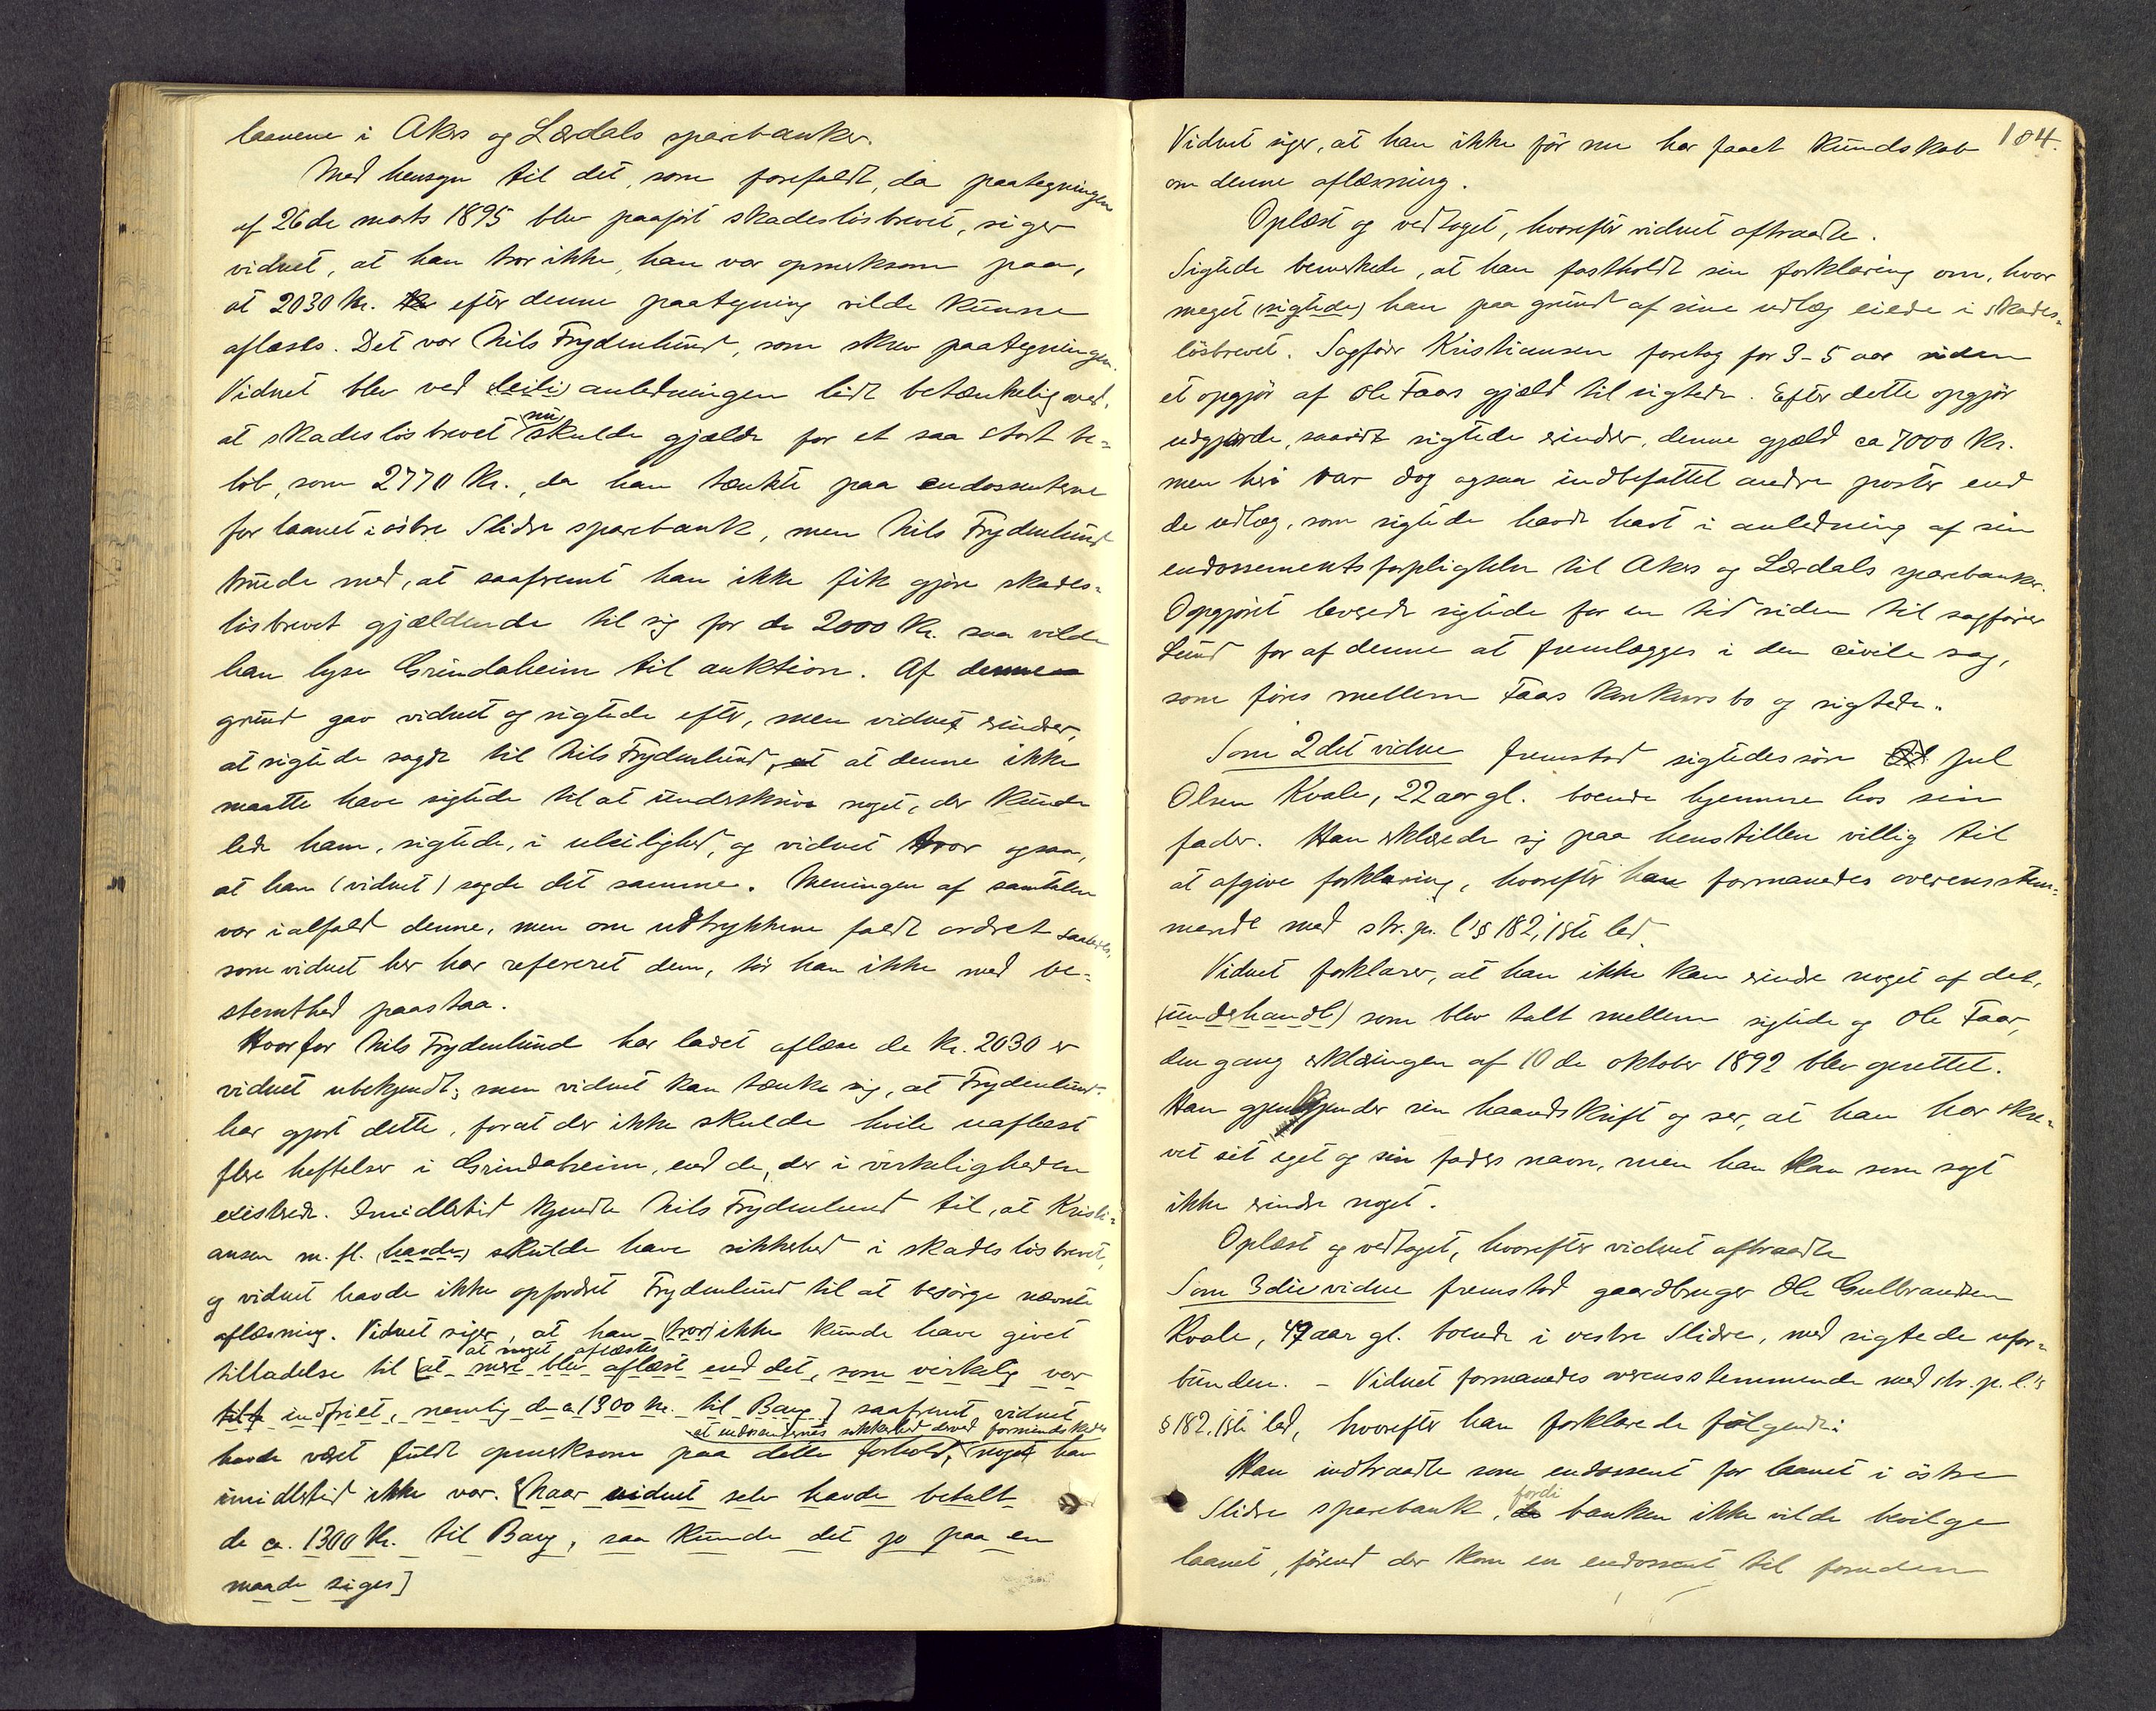 laanene i Akers og Lærdals sparebanker.
Med hensyn til det, som forefaldt, da paategningen
af 26de marts 1895 blev paaført skadesløsbrevet, siger
vidnet, at han tror ikke, han var opmerksom paa,
at 2030 Kr. efter denne paategning vilde kunne
aflæses. Det var Nils Frydenlund, som skrev paategningen.
Vidnet blev ved (leili) anledningen lidt betænkelig ved,
at skadesløsbrevet nu skulde gjælde for et saa stort be-
løb, som 2770 Kr., da han tænkte paa endossenterne
for laanet i østre Slidre sparebank, men Nils Frydenlund
truede med, at saafremt han ikke fik gjøre skades-
løsbrevet gjældende til sig for de 2000 Kr. saa vilde
han lyse Grindaheim til auktion. Af denne
grund gav vidnet og sigtede efter, men vidnet erindrer,
at sigtede sagde til Nils Frydenlund, at denne ikke
maatte have sigtede til at underskrive noget, der kunde
lede ham, sigtede, i uleilighed, og vidnet tror ogsaa,
at han (vidnet) sagde det samme. Meningen af samtalen
var ialfald denne, men om udtrykkene faldt ordret saaledes,
som vidnet her har refereret dem, tør han ikke med be-
stemthed paastaa.
Hvorfor Nils Frydenlund har ladet aflæse de Kr. 2030 er
vidnet ubekjendt; men vidnet kan tænke sig, at Frydenlund
har gjort dette, forat der ikke skulde hvile uaflæst
flere heftelser i Grindaheim, end de, der i virkeligheden
existerede. Imidlertid kjendte Nils Frydenlund til, at Kristi-
ansen m. fl. (havde) skulde have sikkerhed i skadesløsbrevet,
og vidnet havde ikke opfordret Frydenlund til at besørge nævnte
aflæsning. Vidnet siger, at han (tror) ikke kunde have givet
at noget aflæstes
tilladelse til [at mere blev aflæst end det, som virkelig var
indfriet, nemlig de ca 1300 kr. til Bang] saafremt vidnet
at endossenternes sikkerhed derved formindskedes
havde været fuldt opmerksom paa dette forhold, noget han
imidlertid ikke var. [Naar vidnet selv havde betalt
de ca. 1300 Kr. til Bang, saa kunde det jo paa en
maade siges]
104.
Vidnet siger, at han ikke før nu har faaet kundskab
om denne aflæsning.
Oplæst og vedtaget, hvorefter vidnet aftraadte.
Sigtede bemerkede, at han fastholdt sin forklaring om, hvor
meget (sigtede) han paa grund af sine udlæg eiede i skades-
løsbrevet. Sagfører Kristiansen foretog for 3-5 aar siden
et opgjør af Ole Faas gjæld til sigtede. Efter dette opgjør
udgjorde, saavidt sigtede erindrer, denne gjæld ca 7000 Kr.
men heri var dog ogsaa indbefattet andre poster end
de udlæg, som sigtede havde havt i anledning af sin
endossementsforpligtelse til Akers og Lærdals sparebanker.
Opgjøret leverede sigtede for en tid siden til sagfører
Lund for af denne at fremlægges i den civile sag,
som føres mellem Faas konkursbo og sigtede.
Som 2det vidne fremstod sigtedes søn Jul
Olsen Kvale, 22 aar gl. boende hjemme hos sin
fader. Han erklærede sig paa henstillen villig til
at afgive forklaring, hvorefter han formanedes overensstem-
mende med str. pr. l's § 182, 1ste led.
Vidnet forklarer, at han ikke kan erindre noget af det,
(underhandl) som blev talt mellem sigtede og Ole Faas,
den gang erklæringen af 10de oktober 1892 blev oprettet.
Han gjenkjender sin haandskrift og ser, at han har skre-
vet sit eget og sin faders navn, men han kan som sagt
ikke erindre noget.
Oplæst og vedtaget, hvorefter vidnet aftraadte
Som 3die vidne fremstod gaardbruger Ole Gulbrandsen
Kvale, 47 aar gl. boende i vestre Slidre, med sigtede ufor-
bunden. - Vidnet formanedes overensstemmende med str. p. l.'s
§ 182, 1ste led, hvorefter han forklarede følgende:
Han indtraadte som endossent for laanet i østre
Slidre sparebank, fordi banken ikke vilde bevilge
laanet, førend der kom en endossent til foruden